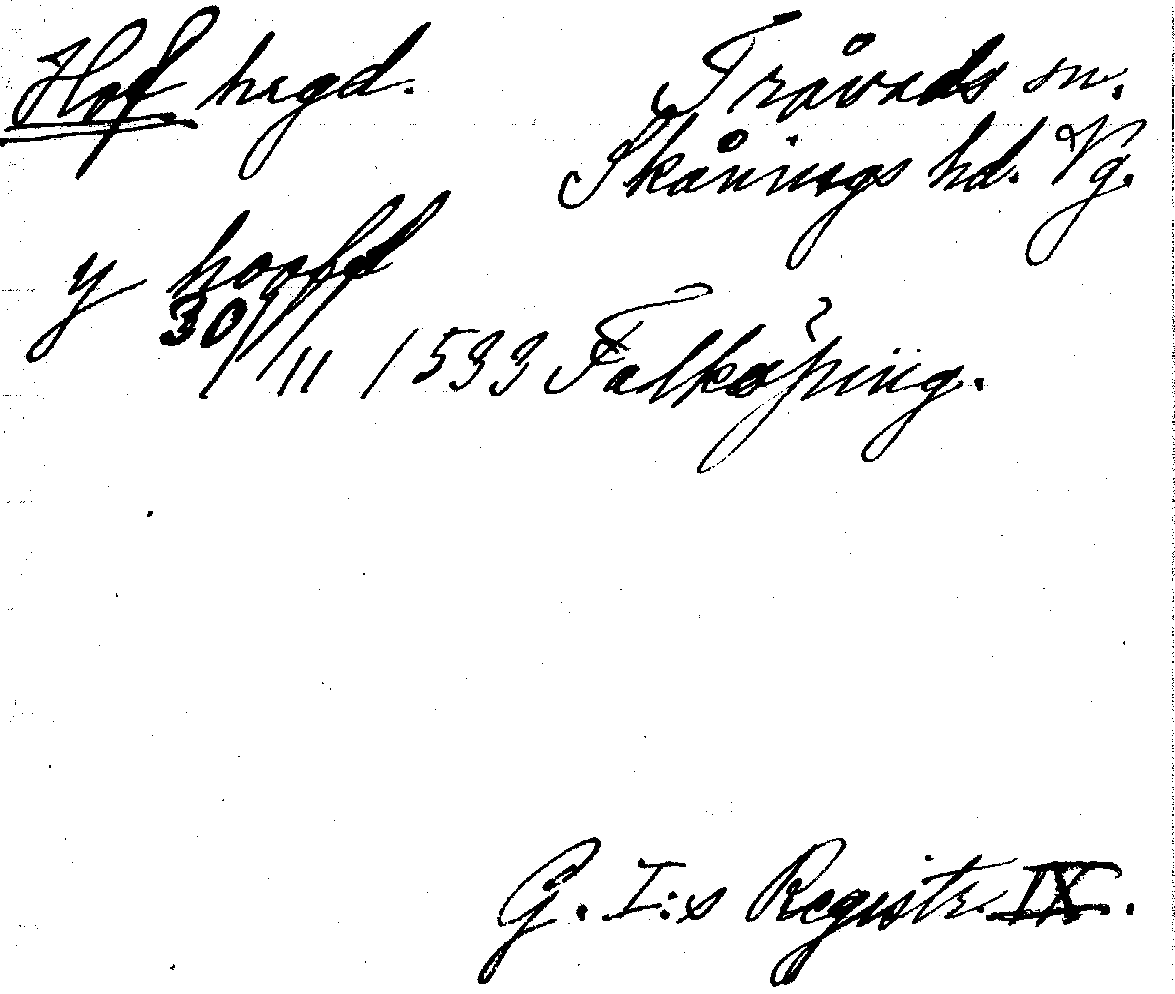 Hof hrgd. Tråvads sn.
Skånings hd. Vg.
y hooff
30/11 1533 Falköping.
G. I:s Registr. IX.